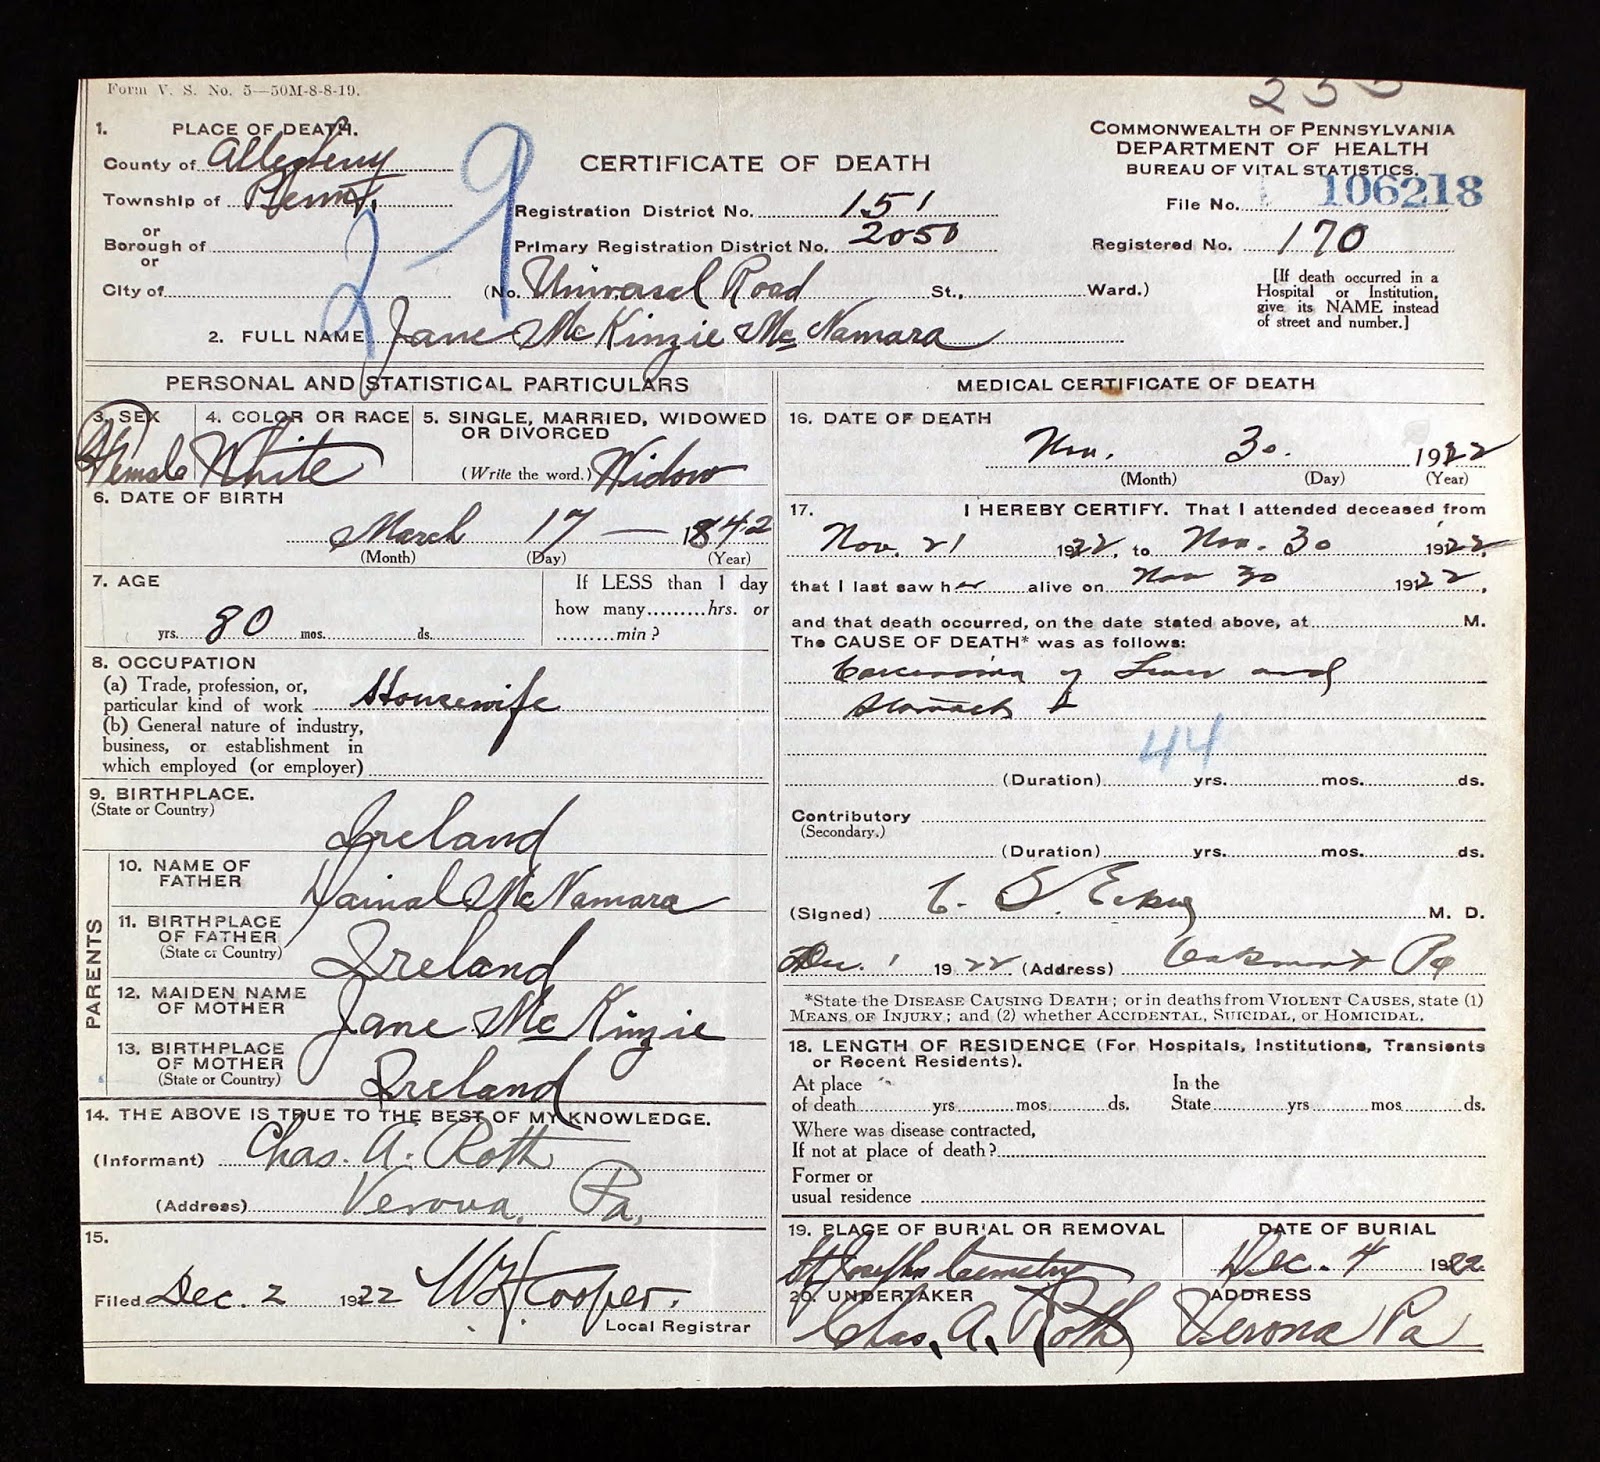 Form V. S. No. 5—50M-8-8-19.
1. PLACE OF DEATH.
County of Allegheny
Township of Penn
or
Borough of
or
City of
2-9
CERTIFICATE OF DEATH
Registration District No. 151
Primary Registration District No. 2050
(No. Universal Road St., Ward.)
COMMONWEALTH OF PENNSYLVANIA
DEPARTMENT OF HEALTH
BUREAU OF VITAL STATISTICS.
File No. 106218
Registered No. 170
[If death occurred in a
Hospital or Institution,
give its NAME instead
of street and number.]
2. FULL NAME Jane McKinzie McNamara
PERSONAL AND STATISTICAL PARTICULARS
3. SEX
Female
4. COLOR OR RACE
White
5. SINGLE, MARRIED, WIDOWED
OR DIVORCED
(Write the word.) Widow
6. DATE OF BIRTH
March 17 — 1842
(Month) (Day) (Year)
7. AGE
yrs. 80 mos. ds.
If LESS than 1 day
how many.........hrs. or
.........min?
8. OCCUPATION
(a) Trade, profession, or,
particular kind of work Housewife
(b) General nature of industry,
business, or establishment in
which employed (or employer)
9. BIRTHPLACE.
(State or Country)
Ireland
PARENTS
10. NAME OF
FATHER
Dainal McNamara
11. BIRTHPLACE
OF FATHER
(State or Country)
Ireland
12. MAIDEN NAME
OF MOTHER
Jane McKinzie
13. BIRTHPLACE
OF MOTHER
(State or Country)
Ireland
14. THE ABOVE IS TRUE TO THE BEST OF MY KNOWLEDGE.
(Informant) Chas. A. Roth
(Address) Verona, Pa.
15.
Filed Dec. 2 1922 W H Cooper.
Local Registrar
MEDICAL CERTIFICATE OF DEATH
16. DATE OF DEATH
Nov. 30. 1922
(Month) (Day) (Year)
17. I HEREBY CERTIFY. That I attended deceased from
Nov. 21 1922, to Nov. 30 1922,
that I last saw her alive on Nov 30 1922,
and that death occurred, on the date stated above, at M.
The CAUSE OF DEATH* was as follows:
Carcinoma of Liver and
Stomach
44
(Duration) yrs. mos. ds.
Contributory
(Secondary.)
(Duration) yrs. mos. ds.
(Signed) C. S. M. D.
Dec. 1 1922 (Address) Oakmont Pa
*State the DISEASE CAUSING DEATH; or in deaths from VIOLENT CAUSES, state (1)
MEANS OF INJURY; and (2) whether ACCIDENTAL, SUICIDAL, or HOMICIDAL.
18. LENGTH OF RESIDENCE (For Hospitals, Institutions, Transients
or Recent Residents).
At place In the
of death yrs mos ds. State yrs mos ds.
Where was disease contracted,
If not at place of death?
Former or
usual residence
19. PLACE OF BURIAL OR REMOVAL
St Josephs Cemetry
DATE OF BURIAL
Dec. 4 1922
20. UNDERTAKER
Chas. A. Roth
ADDRESS
Verona Pa